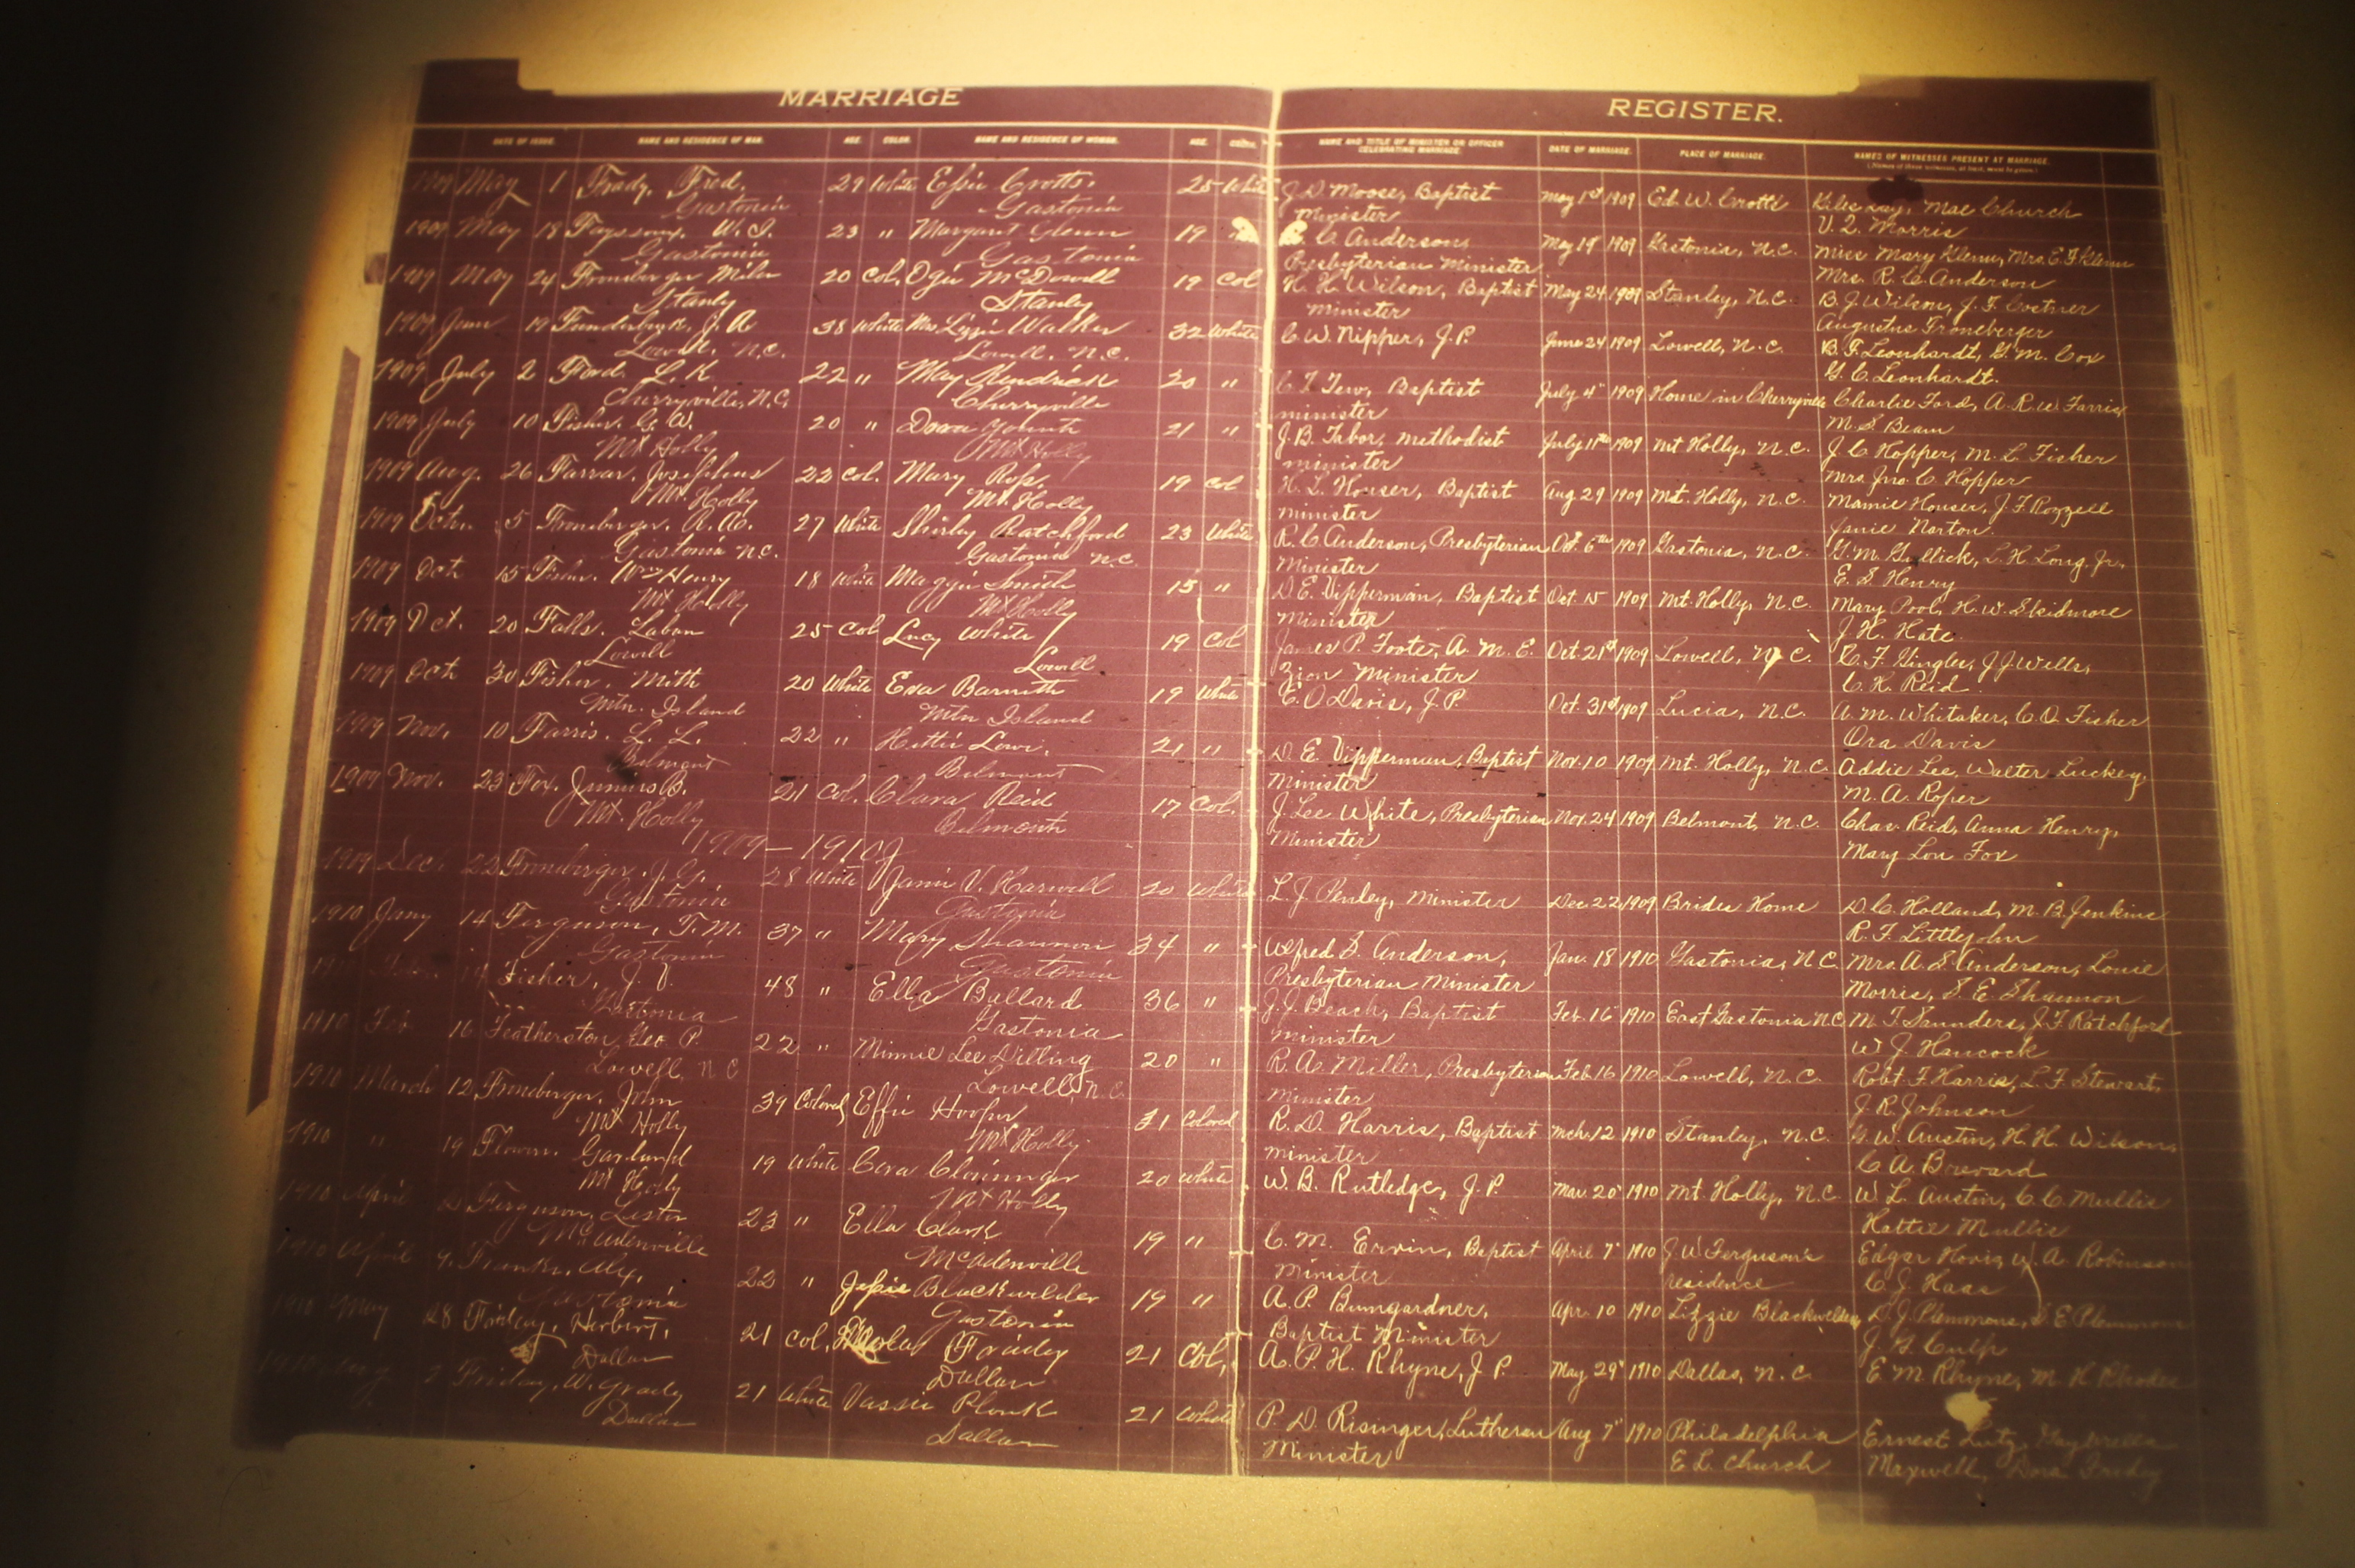 MARRIAGE REGISTER.
DATE OF ISSUE. NAME AND RESIDENCE OF MAN. AGE. COLOR. NAME AND RESIDENCE OF WOMAN. AGE. COLOR. NAME AND TITLE OF MINISTER OR OFFICER CELEBRATING MARRIAGE. DATE OF MARRIAGE. PLACE OF MARRIAGE. NAMES OF WITNESSES PRESENT AT MARRIAGE.
1909 May 1 Frady, Fred, 29 White Effie Crotts, 25 White J. D. Moose, Baptist May 1st 1909 Ed. W. Crotts Mae Church
Gastonia Gastonia Minister V. Q. Morris
1909 May 18 W. I. 23 " Margaret Glenn 19 " C. Anderson, May 19 1909 Gastonia, N.C. Miss Mary Glenn, Mrs. E. F. Glenn
Gastonia Gastonia Presbyterian Minister Mrs. R. C. Anderson
1909 May 24 Froneberger Miles 20 Col. McDowell 19 Col H. H. Wilson, Baptist May 24 1909 Stanley, N.C. B. J. Wilson, J. F. Costner
Stanly Stanley minister Augustus Froneberger
1909 June 19 Funderburk, J. A 38 White Mrs Lizzie Walker 32 White C. W. Nipper, J.P. June 24 1909 Lowell, N.C. B. F. Leonhardt, G. M. Cox
Lowell, N.C. Lowell, N.C. G. C. Leonhardt.
1909 July 2 Ford L. K 22 " May Kendrick 20 " C. T. Tew, Baptist July 4" 1909 Home in Cherryville Charlie Ford, A. R. W. Farris
Cherryville, N.C. Cherryville minister M. S. Beam
1909 July 10 Fisher. G. W. 20 " 21 " J. B. Tabor, methodist July 11th 1909 Mt Holly, N.C. J. C. Hopper, M. L. Fisher
Mt Holly Mt Holly minister Mrs. Jno. C. Hopper
1909 Aug. 26 Farrar, Josephus 22 Col. Mary Ross, 19 Col H. L. Houser, Baptist Aug 29 1909 Mt. Holly, N.C. Mamie Houser, J. F. Rozzell
Mt Holly Mt. Holly minister Janie Norton.
1909 Oct. 5 Froneberger, R. A. 27 White Shirley Ratchford 23 White R. C. Anderson, Presbyterian Oct. 6th 1909 Gastonia, N.C. G. M. Gullick, L. H. Long, Jr.
Gastonia N.C. Gastonia N.C. Minister E. S. Henry
1909 Oct 15 Fisher. Wm Henry 18 White Maggie Smith 15 " D. E. Vipperman, Baptist Oct. 15 1909 Mt. Holly, N.C. Mary Pool, H. W. Skidmore
Mt Holly Mt Holly Minister J. H. Hate.
1909 Oct. 20 Falls. Laban 25 Col Lucy White 19 Col James P. Foote, A. M. E. Oct. 21st 1909 Lowell, N.C. R. F. Gingles, J. J. Wells,
Lowell Lowell Zion Minister C. H. Reid
1909 Oct 30 Fisher, Mith 20 White Eva Barnett 19 White E. O Davis, J.P. Oct. 31st 1909 Lucia, N.C. A. M. Whitaker, C. O. Fisher
Mtn. Island Mtn Island Ora Davis
1909 Nov. 10 Farris. L. L. 22 " Hettie Lowe. 21 " D. E. Vipperman, Baptist Nov. 10 1909 Mt. Holly, N.C. Addie Lee, Walter Luckey,
Belmont Belmont Minister M. A. Roper
1909 Nov. 23 Fox. Junius B. 21 Col. Clara Reid 17 Col. J. Lee White, Presbyterian Nov. 24 1909 Belmont, N.C. Chas. Reid, Anna Henry,
Mt. Holly Belmont Minister Mary Lou Fox
1909 – 1910
1909 Dec. 22 Froneberger, J. G. 28 White Janie V. Harwell 20 White L. J. Penley, Minister Dec. 22 1909 Brides Home D. C. Holland, M. B. Jenkins
Gastonia Gastonia R. F. Littlejohn
1910 Jany 14 Ferguson, T. M. 37 " Mary Shannon 34 " Alfred S. Anderson, Jan. 18 1910 Gastonia, N.C. Mrs. A. S. Anderson, Louie
Gastonia Gastonia Presbyterian Minister Morris, S. E. Shannon
14 Fisher, J. V. 48 " Ella Ballard 36 " J. J. Beach, Baptist Feb. 16 1910 East Gastonia N.C. M. T. Saunders, J. F. Ratchford
Gastonia Gastonia minister W. J. Hancock
1910 Feb 16 Featherston, Geo P. 22 " Minnie Lee Dilling 20 " R. A. Miller, Presbyterian Feb. 16 1910 Lowell, N.C. Robt. F. Harris, L. F. Stewart,
Lowell, N C Lowell, N.C. minister J. R. Johnson
1910 March 12 Froneberger, John 39 Colored Effie Hoofer 31 Colored R. D. Harris, Baptist Mch. 12 1910 Stanley, N.C. G. W. Austin, H. H. Wilson,
Mt Holly Mt Holly minister C. A. Brevard
1910 " 19 Flowers. Garland 19 White Cora Cloninger 20 White W. B. Rutledge, J.P. Mar. 20" 1910 Mt. Holly, N.C. W L. Austin, C. C. Mullis
Mt Holly Mt Holly Hattie Mullis
1910 April Ferguson, Lester 23 " Ella Clark 19 " C. M. Ervin, Baptist April 7" 1910 J. W. Ferguson's Edgar Hovis, W. A. Robinson
McAdenville McAdenville minister residence C. J. Haas
1910 April 9. Franks, Alex, 22 " Jessie Blackwelder 19 " A. P. Bumgardner, Apr. 10 1910 Lizzie Blackwelder D. J. Plemmons, S. E. Plemmons
Gastonia Gastonia Baptist Minister J. G. Culp
1910 May 28 Herbert, 21 Col. 21 Col. A. P. H. Rhyne, J P. May 29" 1910 Dallas, N.C. E. M Rhyne, M. H Rhodes
Dallas Dallas
2 Friday, W. Grady 21 White Vassie Plonk 21 White P. D. Risinger, Lutheran Aug 7" 1910 Philadelphia Ernest Lutz,
Dallas Dallas Minister E L. church Maxwell, Dora Friday